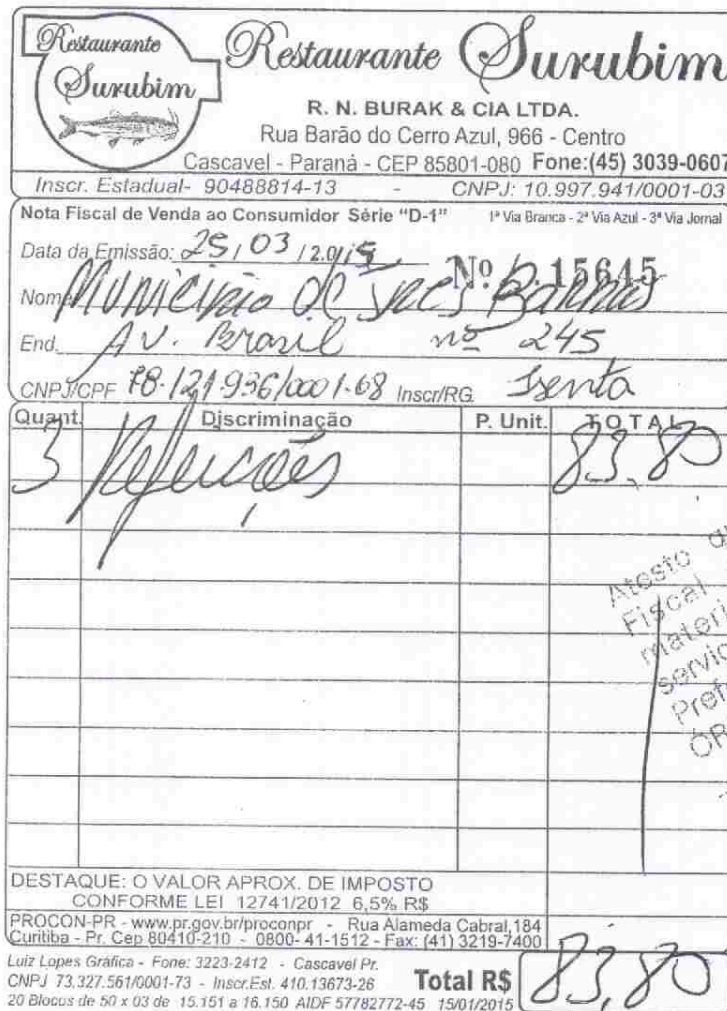 Restaurante
Surubim
Restaurante Surubim
R. N. BURAK & CIA LTDA.
Rua Barão do Cerro Azul, 966 - Centro
Cascavel - Paraná - CEP 85801-080 Fone:(45) 3039-0607
Inscr. Estadual- 90488814-13 - CNPJ: 10.997.941/0001-03
Nota Fiscal de Venda ao Consumidor Série "D-1" 1ª Via Branca - 2ª Via Azul - 3ª Via Jornal
Data da Emissão: 25/03/2015
Nº 15645
Nome Município de Três Barras
End. Av. Brasil nº 245
CNPJ/CPF 78.121.936/0001-68 Inscr/RG Isenta
Quant. Discriminação P. Unit. TOTAL
3 Refeições 83,80
Atesto
Fiscal
DESTAQUE: O VALOR APROX. DE IMPOSTO
CONFORME LEI 12741/2012 6,5% R$
PROCON-PR - www.pr.gov.br/proconpr - Rua Alameda Cabral,184
Curitiba - Pr. Cep 80410-210 - 0800- 41-1512 - Fax: (41) 3219-7400
Luiz Lopes Gráfica - Fone: 3223-2412 - Cascavel Pr.
CNPJ 73.327.561/0001-73 - Inscr.Est. 410.13673-26
20 Blocos de 50 x 03 de 15.151 a 16.150 AIDF 57782772-45 15/01/2015
Total R$ 83,80